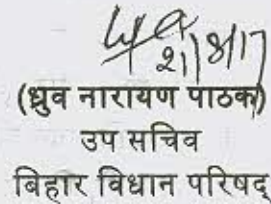 21/8/17
(ध्रुव नारायण पाठक)
उप सचिव
बिहार विधान परिषद्